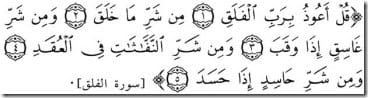 ﴿قُلْ أَعُوذُ بِرَبِّ الْفَلَقِ ۝١ مِن شَرِّ مَا خَلَقَ ۝٢ وَمِن شَرِّ
غَاسِقٍ إِذَا وَقَبَ ۝٣ وَمِن شَرِّ النَّفَّاثَاتِ فِي الْعُقَدِ ۝٤
وَمِن شَرِّ حَاسِدٍ إِذَا حَسَدَ ۝٥﴾ [سورة الفلق].